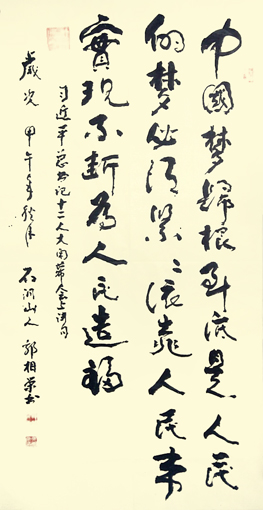 中國梦歸根到底是人民
的梦必須緊〻依靠人民来
實現不断為人民造福
习近平总书记十二人大闭幕会上讲
歲次甲午年
石洞山人郭相荣书